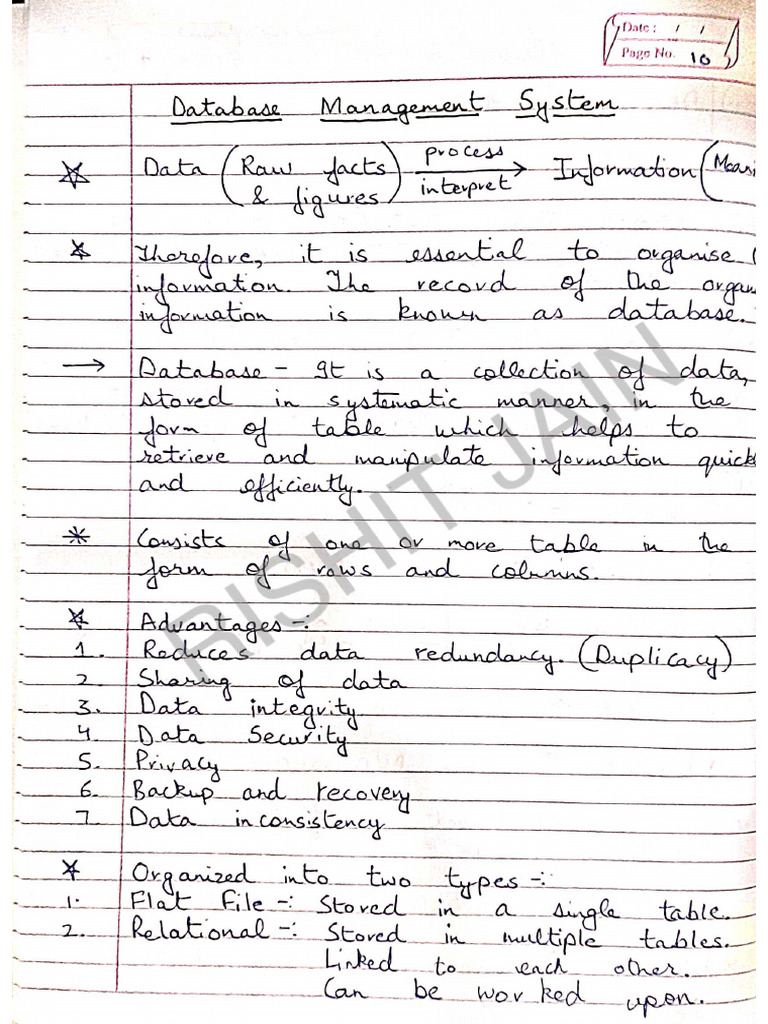 Date : / /
Page No. 10
Database Management System
Data (Raw facts & figures) process interpret → Information (Meani
Therefore, it is essential to organise
information. The record of the organ
information is known as database.
→ Database - It is a collection of data,
stored in systematic manner, in the
form of table which helps to
retrieve and manipulate information quick
and efficiently.
Consists of one or more table in the
form of rows and columns.
Advantages -:
1. Reduces data redundancy. (Duplicacy)
2. Sharing of data
3. Data integrity
4. Data Security
5. Privacy
6. Backup and recovery
7. Data inconsistency
Organized into two types -:
1. Flat File -: Stored in a single table.
2. Relational -: Stored in multiple tables.
Linked to each other.
Can be worked upon.
RISHIT JAIN